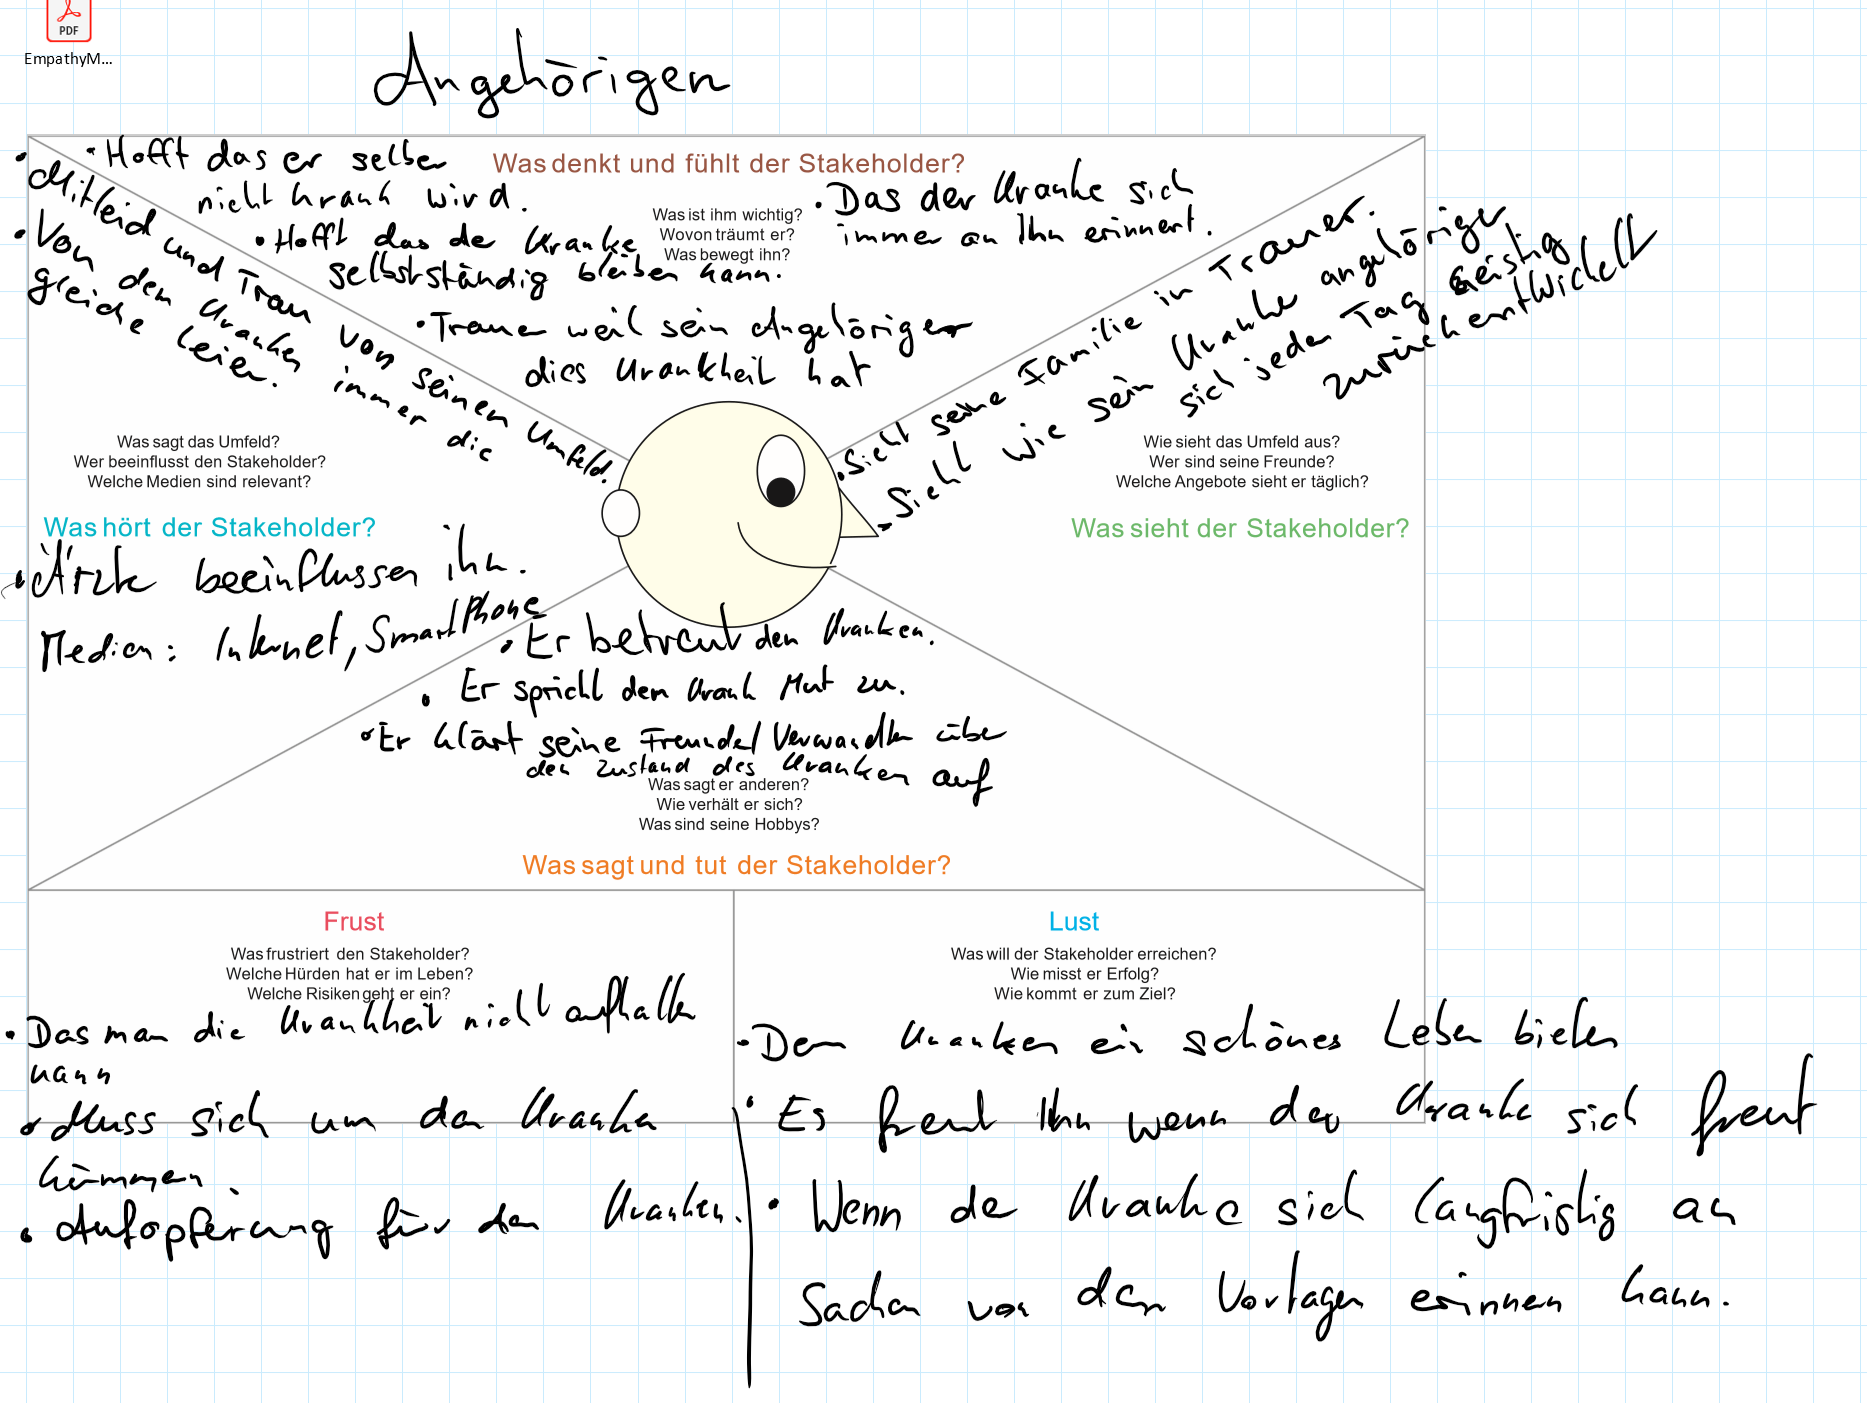 PDF
EmpathyM...
Angehörigen
Was denkt und fühlt der Stakeholder?
Was ist ihm wichtig?
Wovon träumt er?
Was bewegt ihn?
• Hofft das er selber
nicht krank wird.
• Hofft das der Kranke
selbstständig bleiben kann.
• Das der Kranke sich
immer an Ihn erinnert.
• Trauer weil sein Angehöriger
dies Krankheit hat
• Mitleid und Trau von seinen Umfeld.
• Von den Kranken immer die
gleiche Leier.
Was sagt das Umfeld?
Wer beeinflusst den Stakeholder?
Welche Medien sind relevant?
Was hört der Stakeholder?
• Ärzte beeinflussen ihn.
Medien: Internet, SmartPhone
• Sieht seine Familie in Trauer.
• Sieht wie sein Kranke angehöriger
sich jeden Tag geistig
zurück entwickelt
Wie sieht das Umfeld aus?
Wer sind seine Freunde?
Welche Angebote sieht er täglich?
Was sieht der Stakeholder?
• Er betreut den Kranken.
• Er spricht den Krank Mut zu.
• Er klärt seine Freunde/Verwandten über
den Zustand des Kranken auf
Was sagt er anderen?
Wie verhält er sich?
Was sind seine Hobbys?
Was sagt und tut der Stakeholder?
Frust
Was frustriert den Stakeholder?
Welche Hürden hat er im Leben?
Welche Risiken geht er ein?
• Das man die Krankheit nicht aufhalten
kann
• Muss sich um den Kranken
kümmern.
• Aufopferung für den Kranken.
Lust
Was will der Stakeholder erreichen?
Wie misst er Erfolg?
Wie kommt er zum Ziel?
• Dem Kranken ein schönes Leben bieten
• Es freut Ihn wenn der Kranke sich freut
• Wenn der Kranke sich langfristig an
Sachen von den Vortagen erinnen kann.